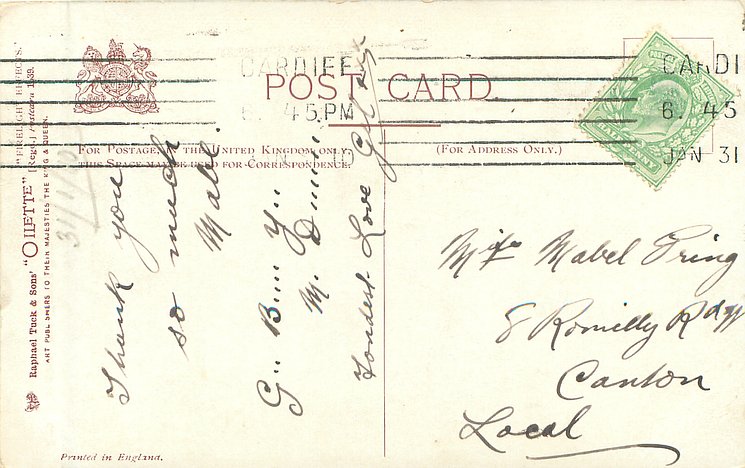 POST CARD
CARDIFF
6. 45 PM
CARDI
6. 45
JAN 31
FOR POSTAGE, IN THE UNITED KINGDOM ONLY,
THIS SPACE MAY BE USED FOR CORRESPONDENCE.
(FOR ADDRESS ONLY.)
"FIRELIGHT EFFECTS."
Raphael Tuck & Sons' "OILETTE" [Regd.] Postcard 1539.
ART PUBLISHERS TO THEIR MAJESTIES THE KING & QUEEN.
31/1/0
Thank you
so much
Mabel
M.
Fondest Love
Miss Mabel Pring
8 Romilly Rd
Canton
Local
Printed in England.